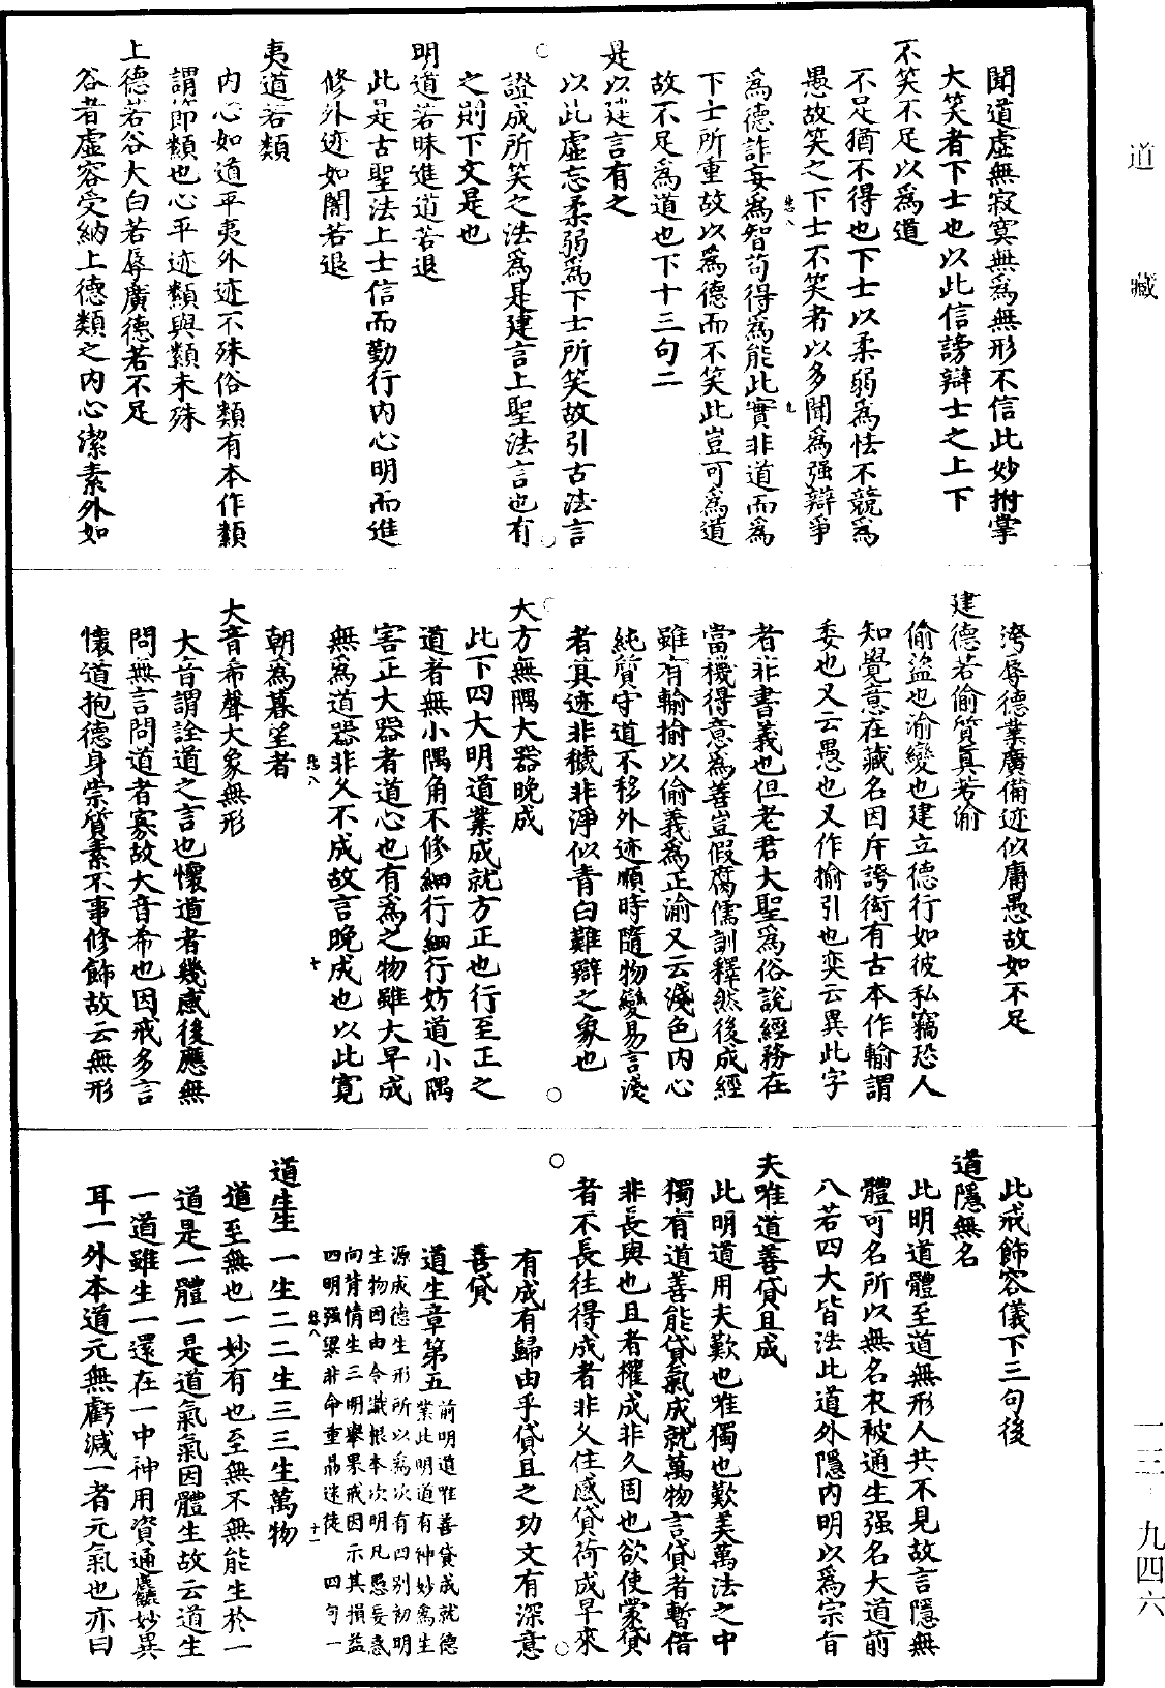 道藏
聞道虛無寂寞無爲無形不信此妙拊掌
大笑者下士也以此信謗辯士之上下
不笑不足以爲道
不足猶不得也下士以柔弱爲怯不競爲
愚故笑之下士不笑者以多聞爲强辯爭
爲德詐妄爲智苟得爲能此實非道而爲
下士所重故以爲德而不笑此豈可爲道
故不足爲道也下十三句二
是以建言有之
以此虛忘柔弱爲下士所笑故引古法言
證成所笑之法爲是建言上聖法言也有
之則下文是也
明道若昧進道若退
此是古聖法上士信而勤行內心明而進
修外迹如闇若退
夷道若類
內心如道平夷外迹不殊俗類有本作纇
謂節纇也心平迹纇與纇未殊
上德若谷大白若辱廣德若不足
谷者虛容受納上德類之內心潔素外如
洿辱德業廣備迹似庸愚故如不足
建德若偷質真若渝
偷盜也渝變也建立德行如彼私竊恐人
知覺意在藏名因斥誇衒有古本作輸謂
委也又云愚也又作揄引也奕云異此字
者非書義也但老君大聖爲俗說經務在
當機得意爲善豈假腐儒訓釋然後成經
雖有輸揄以偷義爲正渝又云淺色內心
純質守道不移外迹順時隨物變易言淺
者其迹非穢非淨似青白難辯之象也
大方無隅大器晚成
此下四大明道業成就方正也行至正之
道者無小隅角不修細行細行妨道小隅
害正大器者道心也有爲之物雖大早成
無爲道器非久不成故言晚成也以此寬
朝爲暮望者
大音希聲大象無形
大音謂詮道之言也懷道者幾感後應無
問無言問道者寡故大音希也因戒多言
懷道抱德身崇質素不事修飾故云無形
此戒飾容儀下三句後
道隱無名
此明道體至道無形人共不見故言隱無
體可名所以無名衣被通生强名大道前
八若四大皆法此道外隱內明以爲宗旨
夫唯道善貸且成
此明道用夫歎也唯獨也歎美萬法之中
獨有道善能貸氣成就萬物言貸者暫借
非長與也且者權成非久固也欲使蒙貸
者不長往得成者非久住感貸荷成早來
有成有歸由乎貸且之功文有深意
善貸
道生章第五
前明道唯善貸成就德
業此明道有神妙爲生
源成德生形所以爲次有四别初明
生物因由令識根本次明凡愚妄惑
向背情生三明舉果戒因示其損益
四明强梁非命重曷迷徒 四句一
道生一一生二二生三三生萬物
道至無也一妙有也至無不無能生於一
道是一體一是道氣氣因體生故云道生
一道雖生一還在一中神用資通麤妙異
耳一外本道元無虧減一者元氣也亦曰
一三·九四六